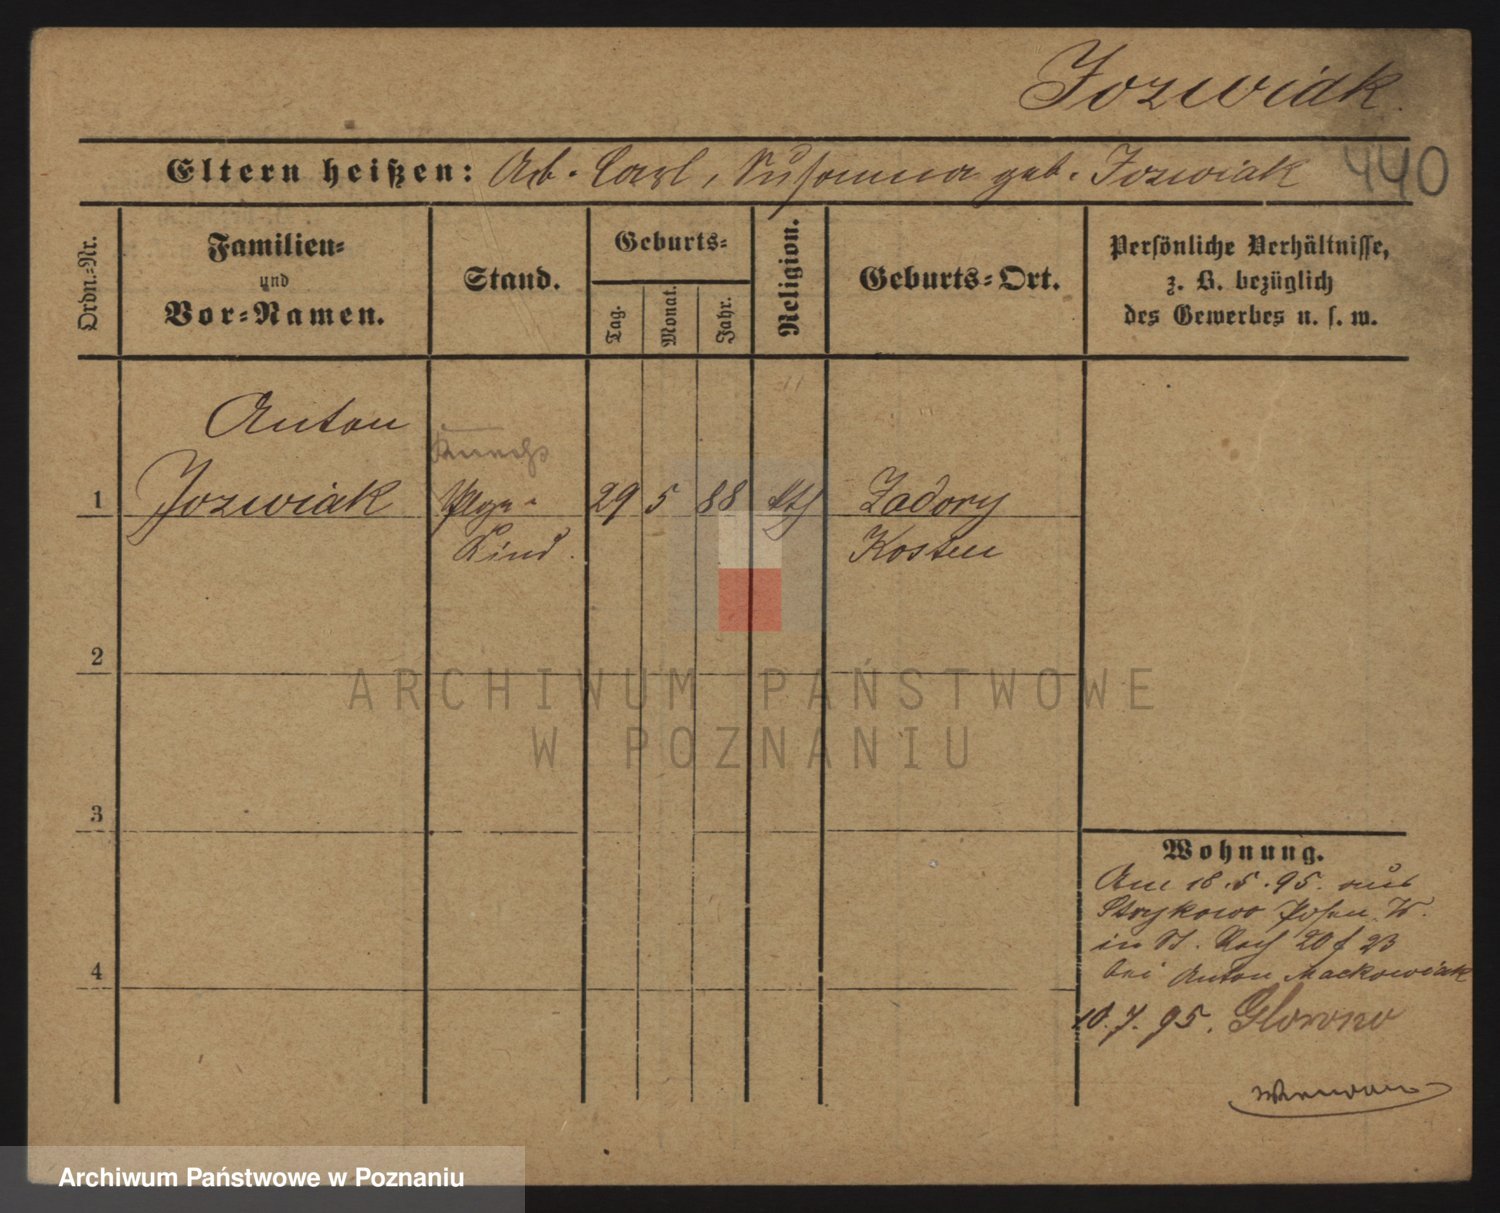 Jozwiak.
440
Eltern heißen: Arb. Carl, Susanna geb. Jozwiak
Ordn.=Nr.
Familien=
und
Vor=Namen.
Stand.
Geburts=
Tag.
Monat.
Jahr.
Religion.
Geburts=Ort.
Persönliche Verhältnisse,
z. B. bezüglich
des Gewerbes u. s. w.
Anton
1 Jozwiak
Kind.
29 5 88 kth
Zadory
Kosten
2
3
4
Wohnung.
Am 18.5.95. aus
Strykowo Posen W.
in St. 20 f 23
bei Anton Mackowiak
10.7.95. Glowno
ARCHIWUM PAŃSTWOWE
W POZNANIU
Archiwum Państwowe w Poznaniu